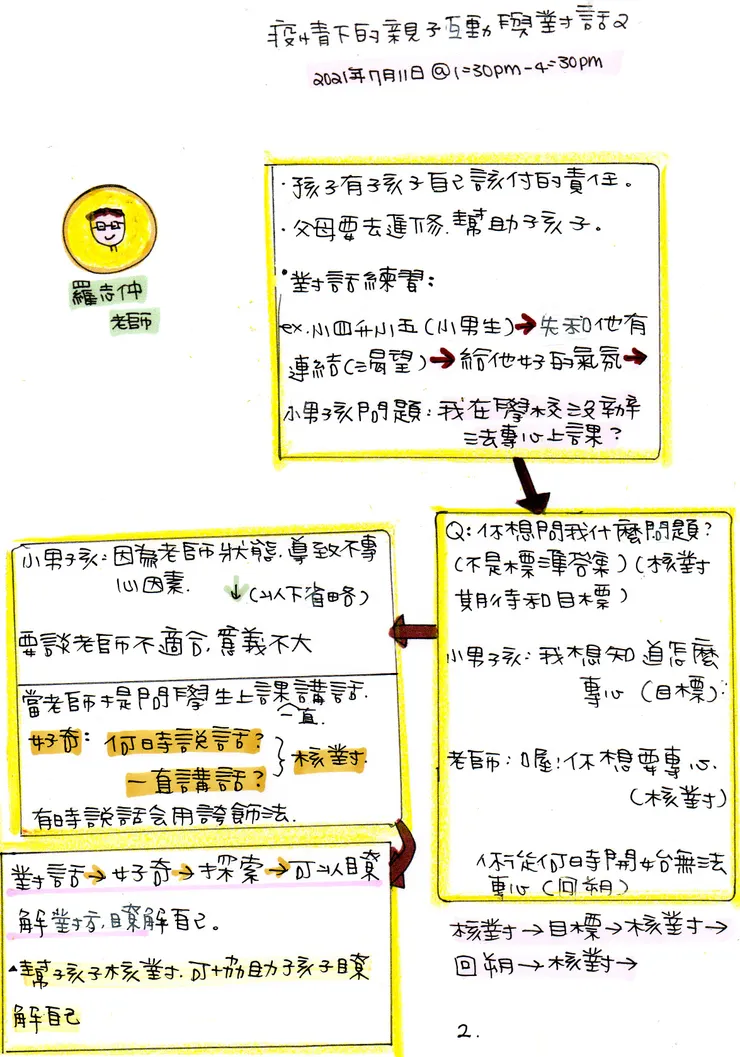 疫情下的親子互動與對話2
2021年7月11日@1=30pm-4=30pm
羅志仲
老師
·孩子有孩子自己該付的責任。
·父母要去進修.幫助孩子。
·對話練習：
ex.小四升小五(小男生)→先和他有
連結(=渴望)→給他好的氣氛→
小男孩問題：我在學校沒辦
法專心上課？
Q：你想問我什麼問題？
(不是標準答案)(核對
期待和目標)
小男孩：我想知道怎麼
專心(目標)：
老師：喔！你想要專心.
(核對)
你從何時開始無法
專心(回朔)
核對→目標→核對→
回朔→核對→
小男孩：因為老師狀態.導致不專
心因素.
↓(以下省略)
要談老師不適合,意義不大
當老師提問學生上課講話.
一直
好奇：何時說話？
一直講話？
}核對.
有時說話會用誇飾法.
對話→好奇→探索→可以瞭
解對方,瞭解自己。
▲幫孩子核對.可協助孩子瞭
解自己
2.